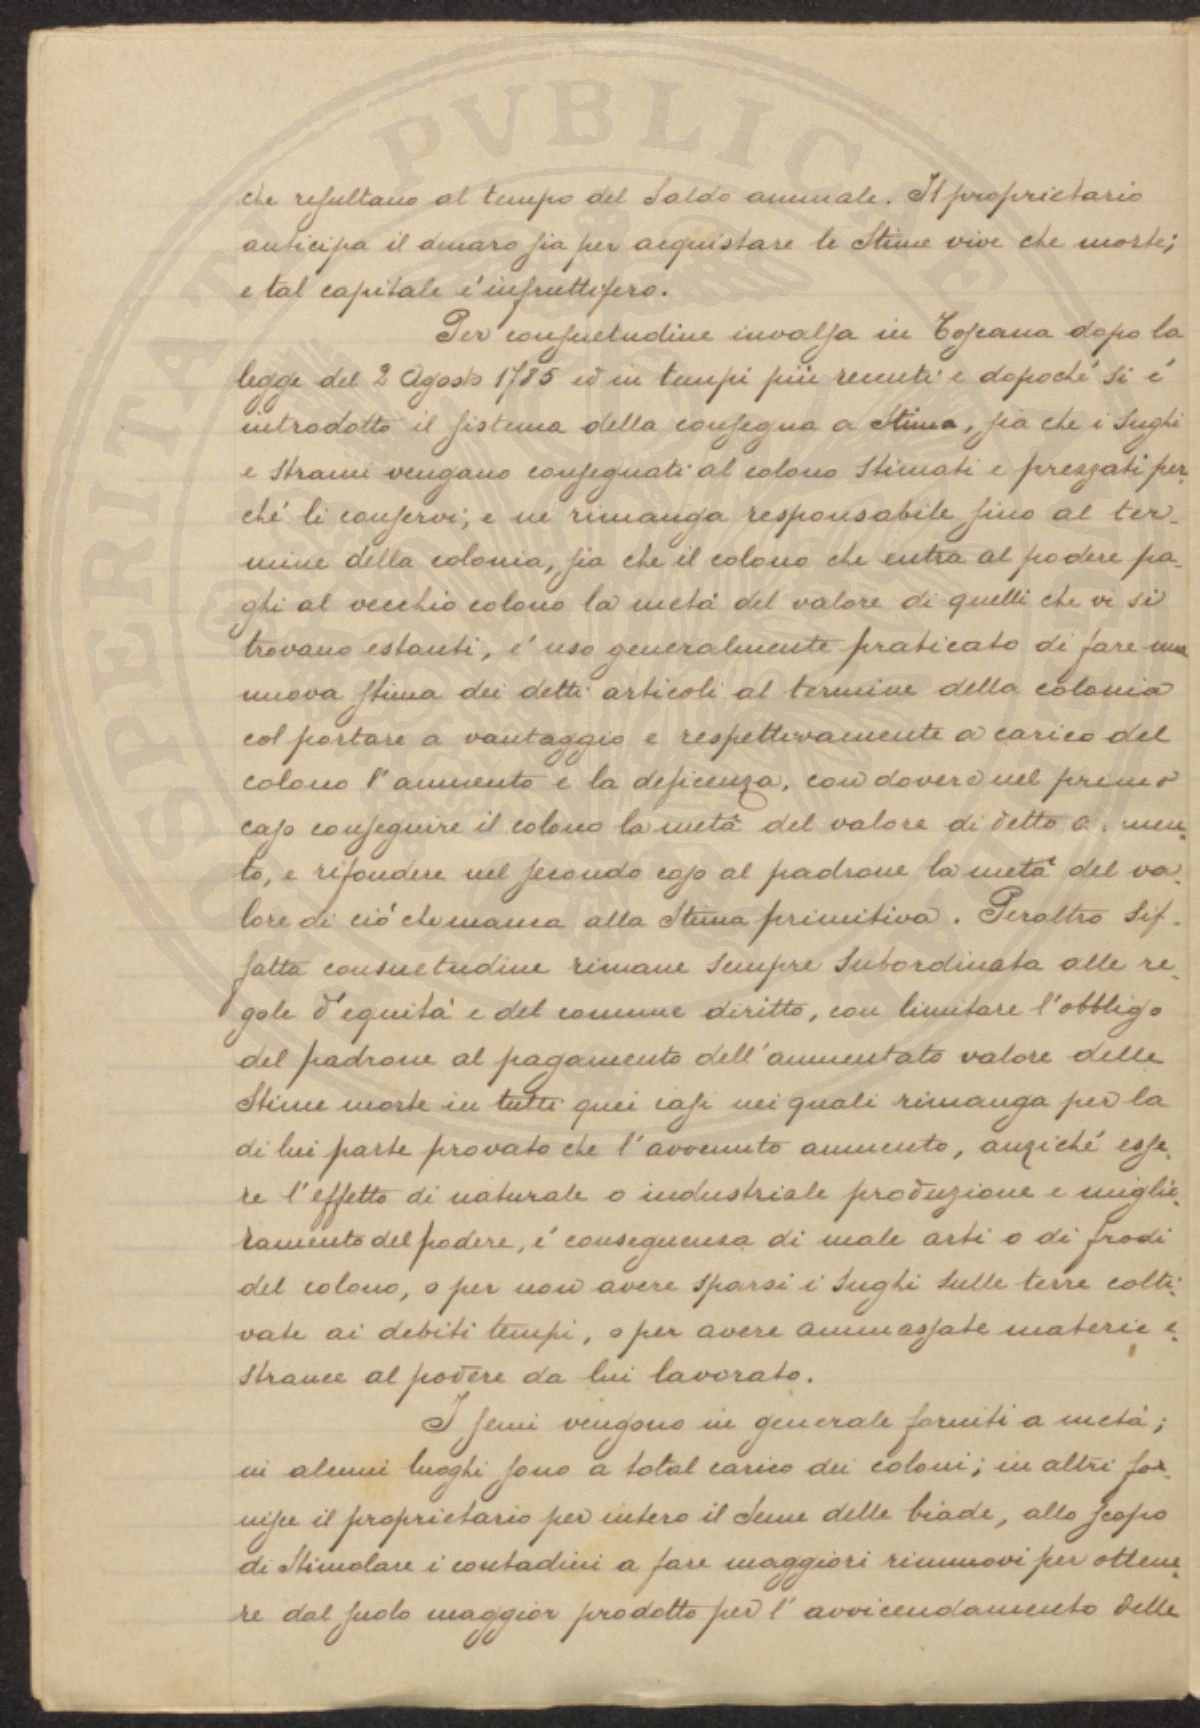 che resultano al tempo del Saldo annuale. Il proprietario
anticipa il denaro sia per acquistare le Stime vive che morte;
e tal capitale é infruttifero.
Per consuetudine invalsa in Toscana dopo la
legge del 2 Agosto 1785 ed in tempi più recenti e dopoché si é
introdotto il sistema della consegna a Stima, sia che i Sughi
e Strami vengano consegnati al colono Stimati e prezzati per-
ché li conservi; e ne rimanga responsabile fino al ter-
mine della colonia, sia che il colono che entra al podere pa-
ghi al vecchio colono la metá del valore di quelli che vi si
trovano estanti, é uso generalmente praticato di fare una
nuova stima dei detti articoli al termine della colonia
col portare a vantaggio e respettivamente a carico del
colono l'aumento e la deficenza, con dovere nel primo
caso conseguire il colono la metá del valore di detto men-
to, e rifondere nel secondo caso al padrone la metá del va-
lore di ció che manca alla Stima primitiva. Peraltro Sif-
fatta consuetudine rimane Sempre Subordinata alle re-
gole d'equitá e del comune diritto, con limitare l'obbligo
del padrone al pagamento dell'aumentato valore delle
Stime morte in tutti quei casi nei quali rimanga per la
di lui parte provato che l'avvenuto aumento, anziché esse-
re l'effetto di naturale o industriale produzione e miglio-
ramento del podere, é conseguenza di male arti o di frodi
del colono, o per non avere Sparsi i Sughi Sulle terre colti-
vate ai debiti tempi, o per avere ammassate materie e-
stranee al podere da lui lavorato.
I semi vengono in generale forniti a metá;
in alcuni luoghi sono a total carico dei coloni; in altri for-
nisce il proprietario per intero il Seme delle biade, allo scopo
di Stimolare i contadini a fare maggiori rinnuovi per ottene-
re dal suolo maggior prodotto per l'avvicendamento delle